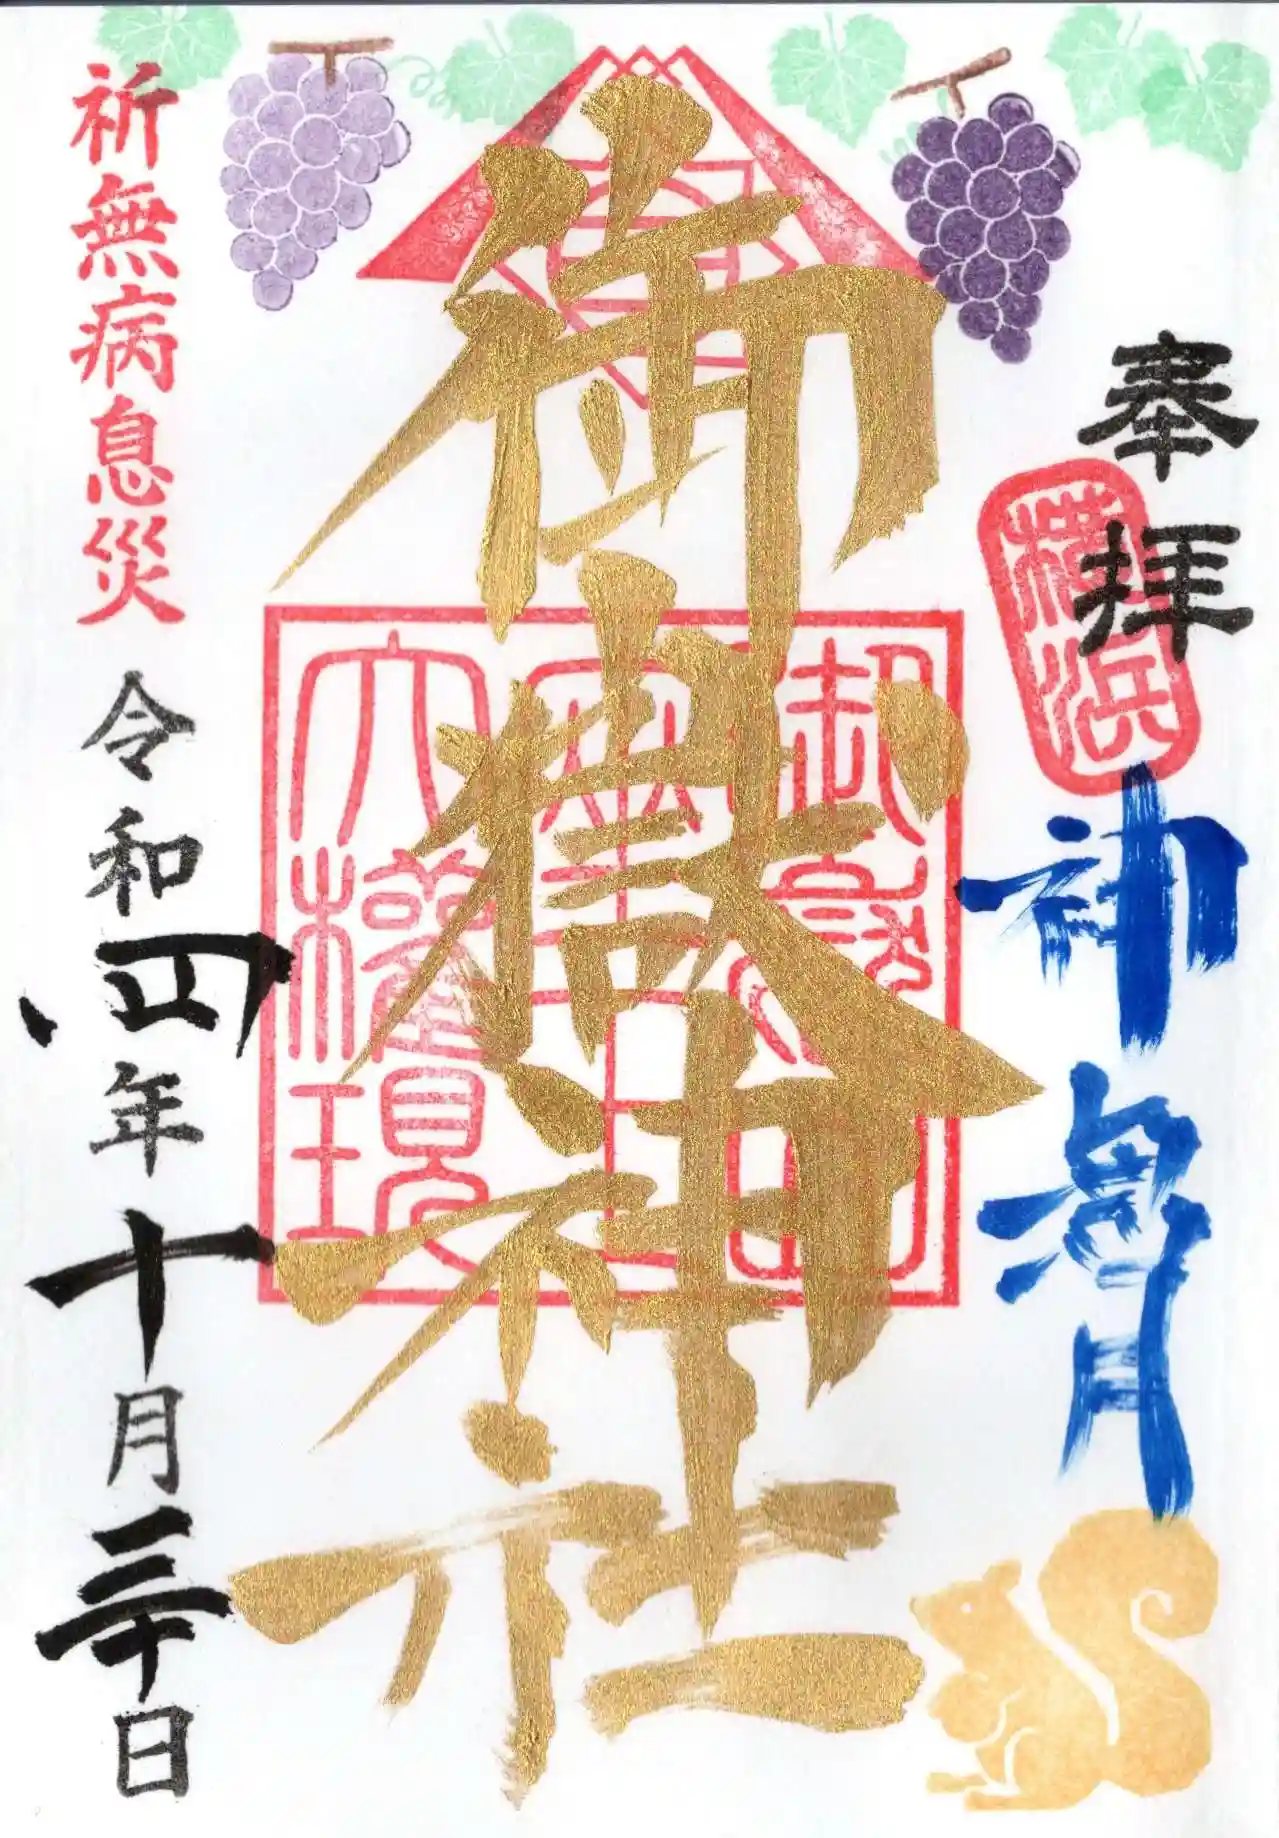 奉拝
横浜
神無月
御嶽神社
御嶽山
大権現
祈無病息災
令和四年十月三十日